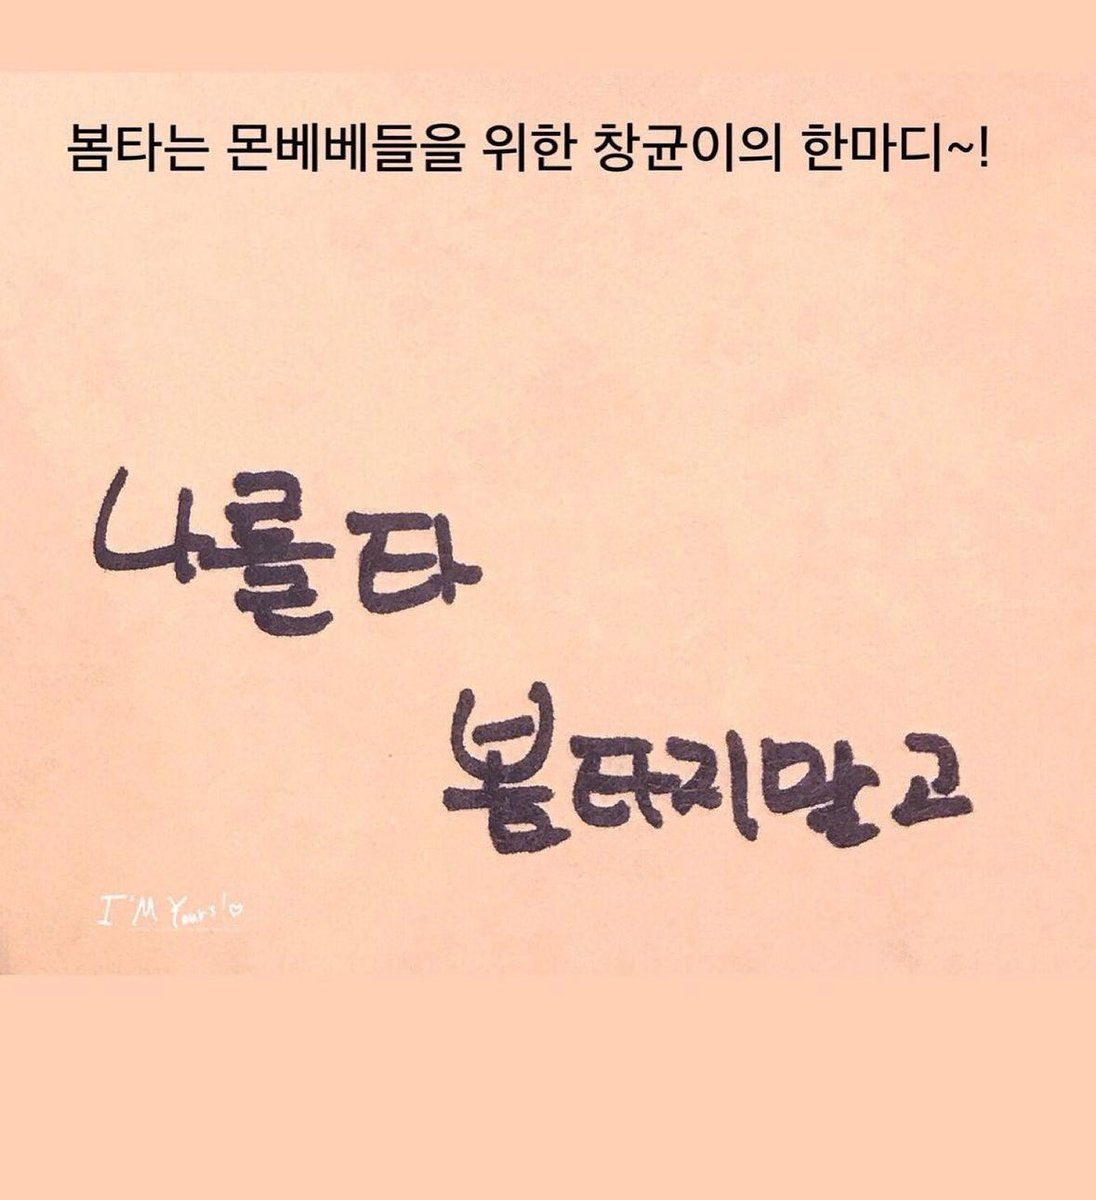 봄타는 몬베베들을 위한 창균이의 한마디~!
나를 타
봄타지말고
I'M Yours!♡